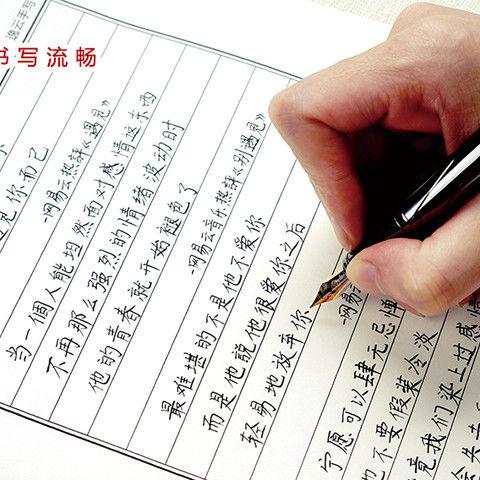 逸云手写
书写流畅
见你而已
-网易云热評《遇见》
当一個人能坦然面对感情这东西
不再那么强烈的情绪波动时
他的青春就开始褪色了
-网易云音乐热評《别遇见》
最难堪的不是他不爱你
而是他說他很爱你之后
轻易地放弃你
-网易云
宁愿可以肆无忌惮
也不要假装冷淡
竟我们染上过感情
会失去